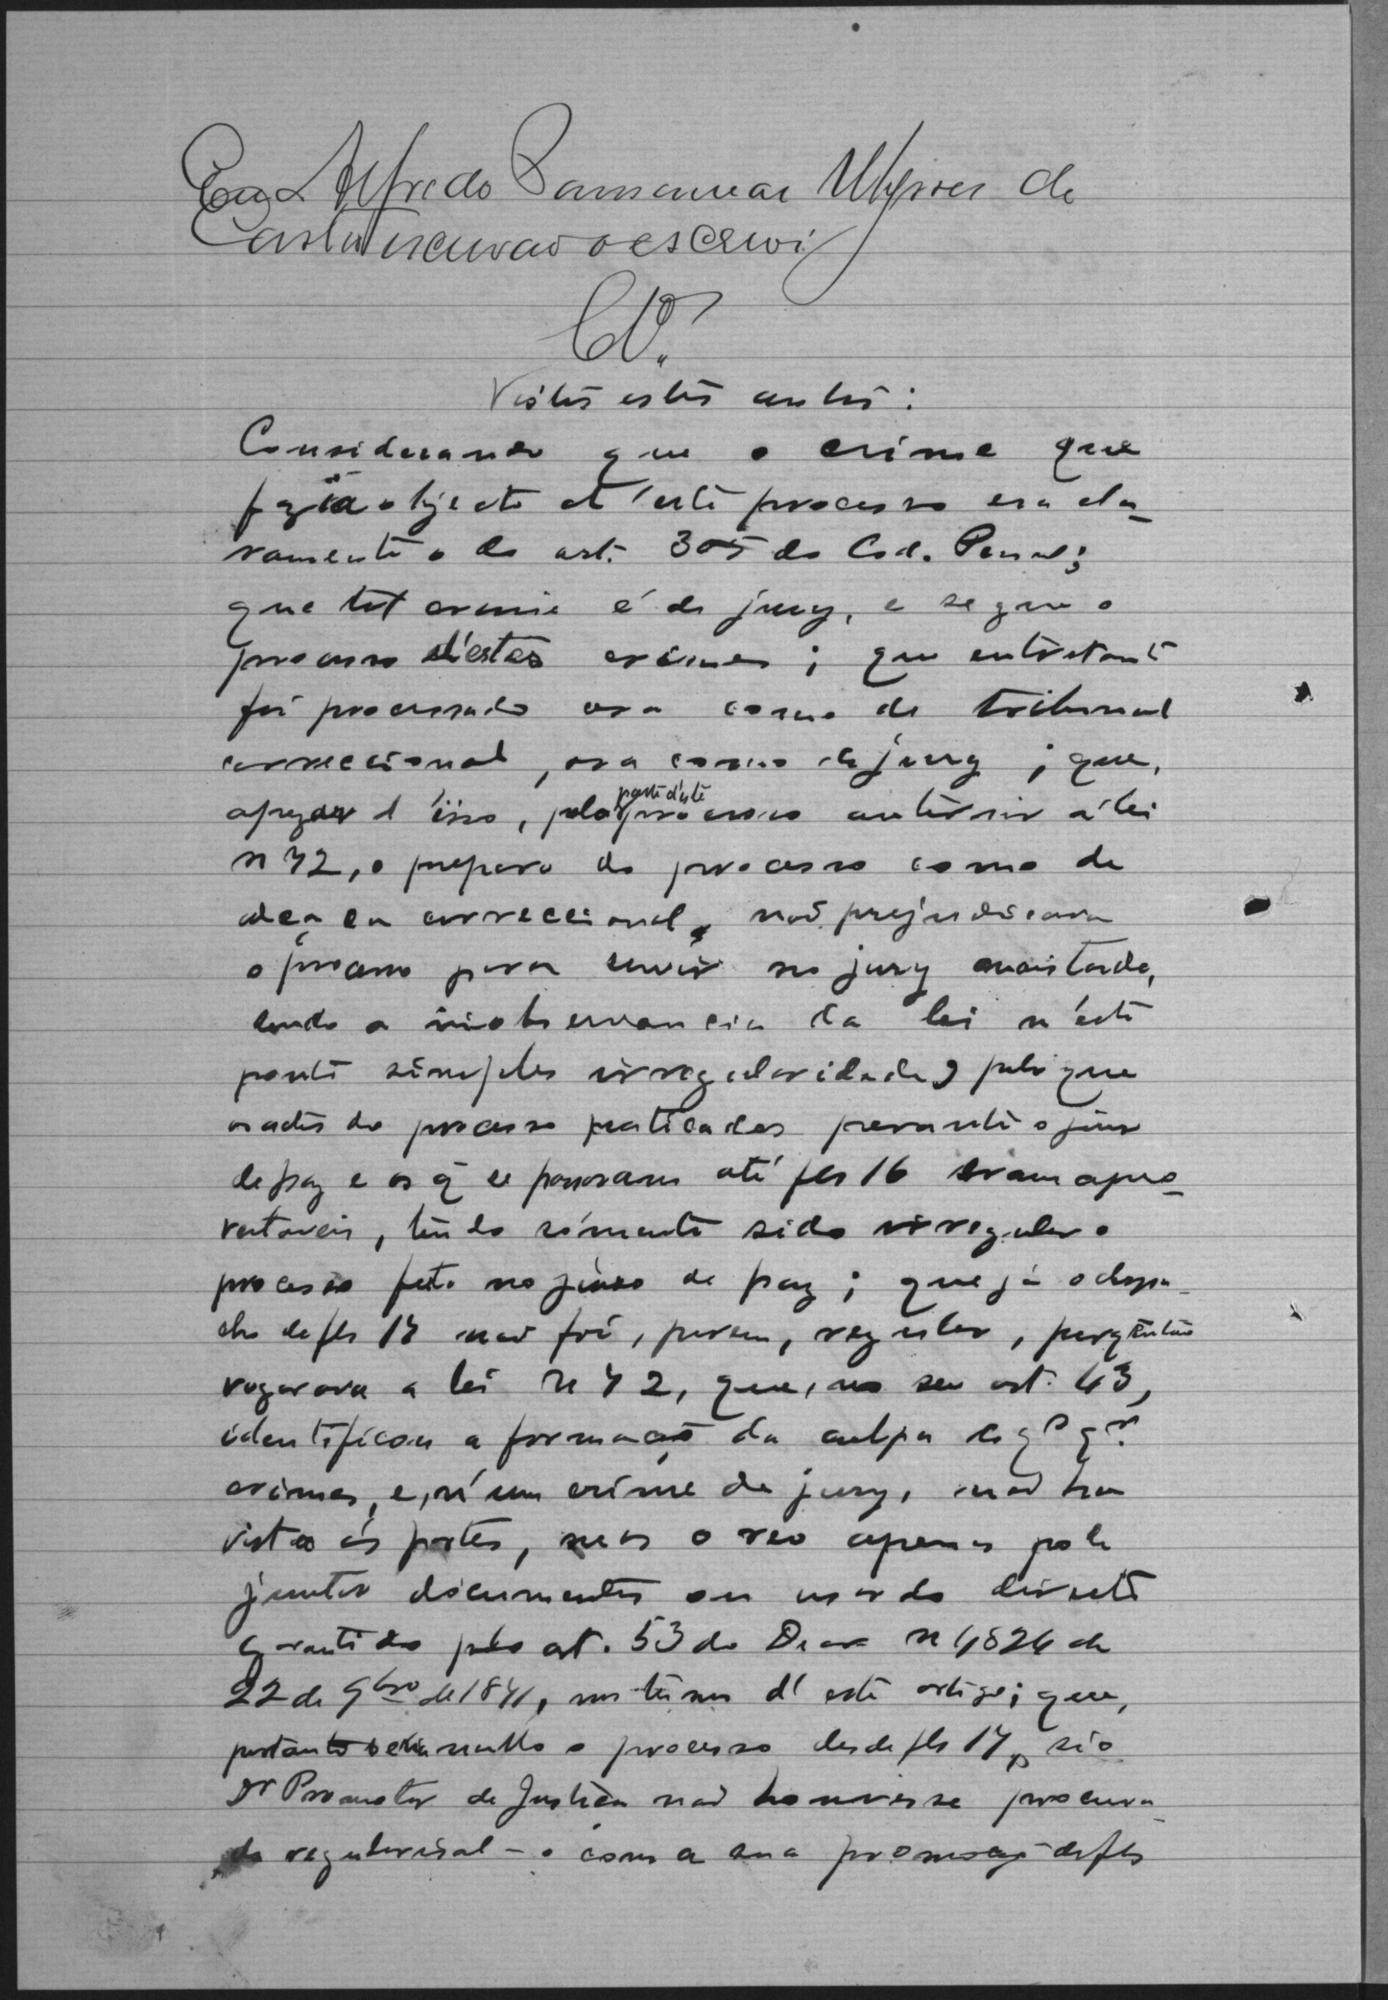 Eu Alfredo Ulysses de
Costa escrivão o escrevi
Clº.
Vistos estes autos:
Considerando que o crime que
fazia objecto d'este processo era cla-
ramente o do art. 305 do Cod. Penal;
que tal crime é de jury, e segue o
processo d'estes crimes; que entretanto
foi processado ora como de tribunal
correccional, ora como de jury; que,
apezar d'isso, pela parte d'este processo anterior á lei
n 72, o preparo do processo como de
alçada correccional, não prejudicava
o processo para servir no jury mais tarde,
sendo a inobservancia da lei n'este
ponto simples irregularidade, pelo que
os actos do processo praticados perante o juiz
de paz e os q̃ se passaram até fls 16 eram apro-
veitaveis, tendo sómente sido irregular o
processo feito no juizo de paz; que já o despa-
cho de fls 17 não foi, porem, regular, porq então
vigorava a lei n 72, que, no seu art. 43,
identificou a formação da culpa de qq
crimes, e, n'um crime de jury, não ha
vista ás partes, mas o reo apenas pode
juntar documentos ou usar do direito
garantido pelo art. 53 do Decr n 4824 de
22 de 9bro de 1871, nos termos d'este artigo; que,
portanto seria nullo o processo desde fls 17, si o
Dr Promotor de Justiça não houvesse procura-
do regularisal-o com a sua promoção de fls